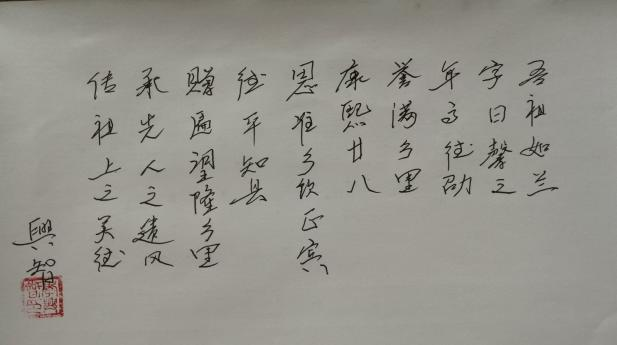 吾祖如兰
字曰馨之
年高德劭
誉满乡里
康熙廿八
恩准乡饮正宾
德平知县
赠匾望隆乡里
承先人之遗风
传祖上之美德
兴智